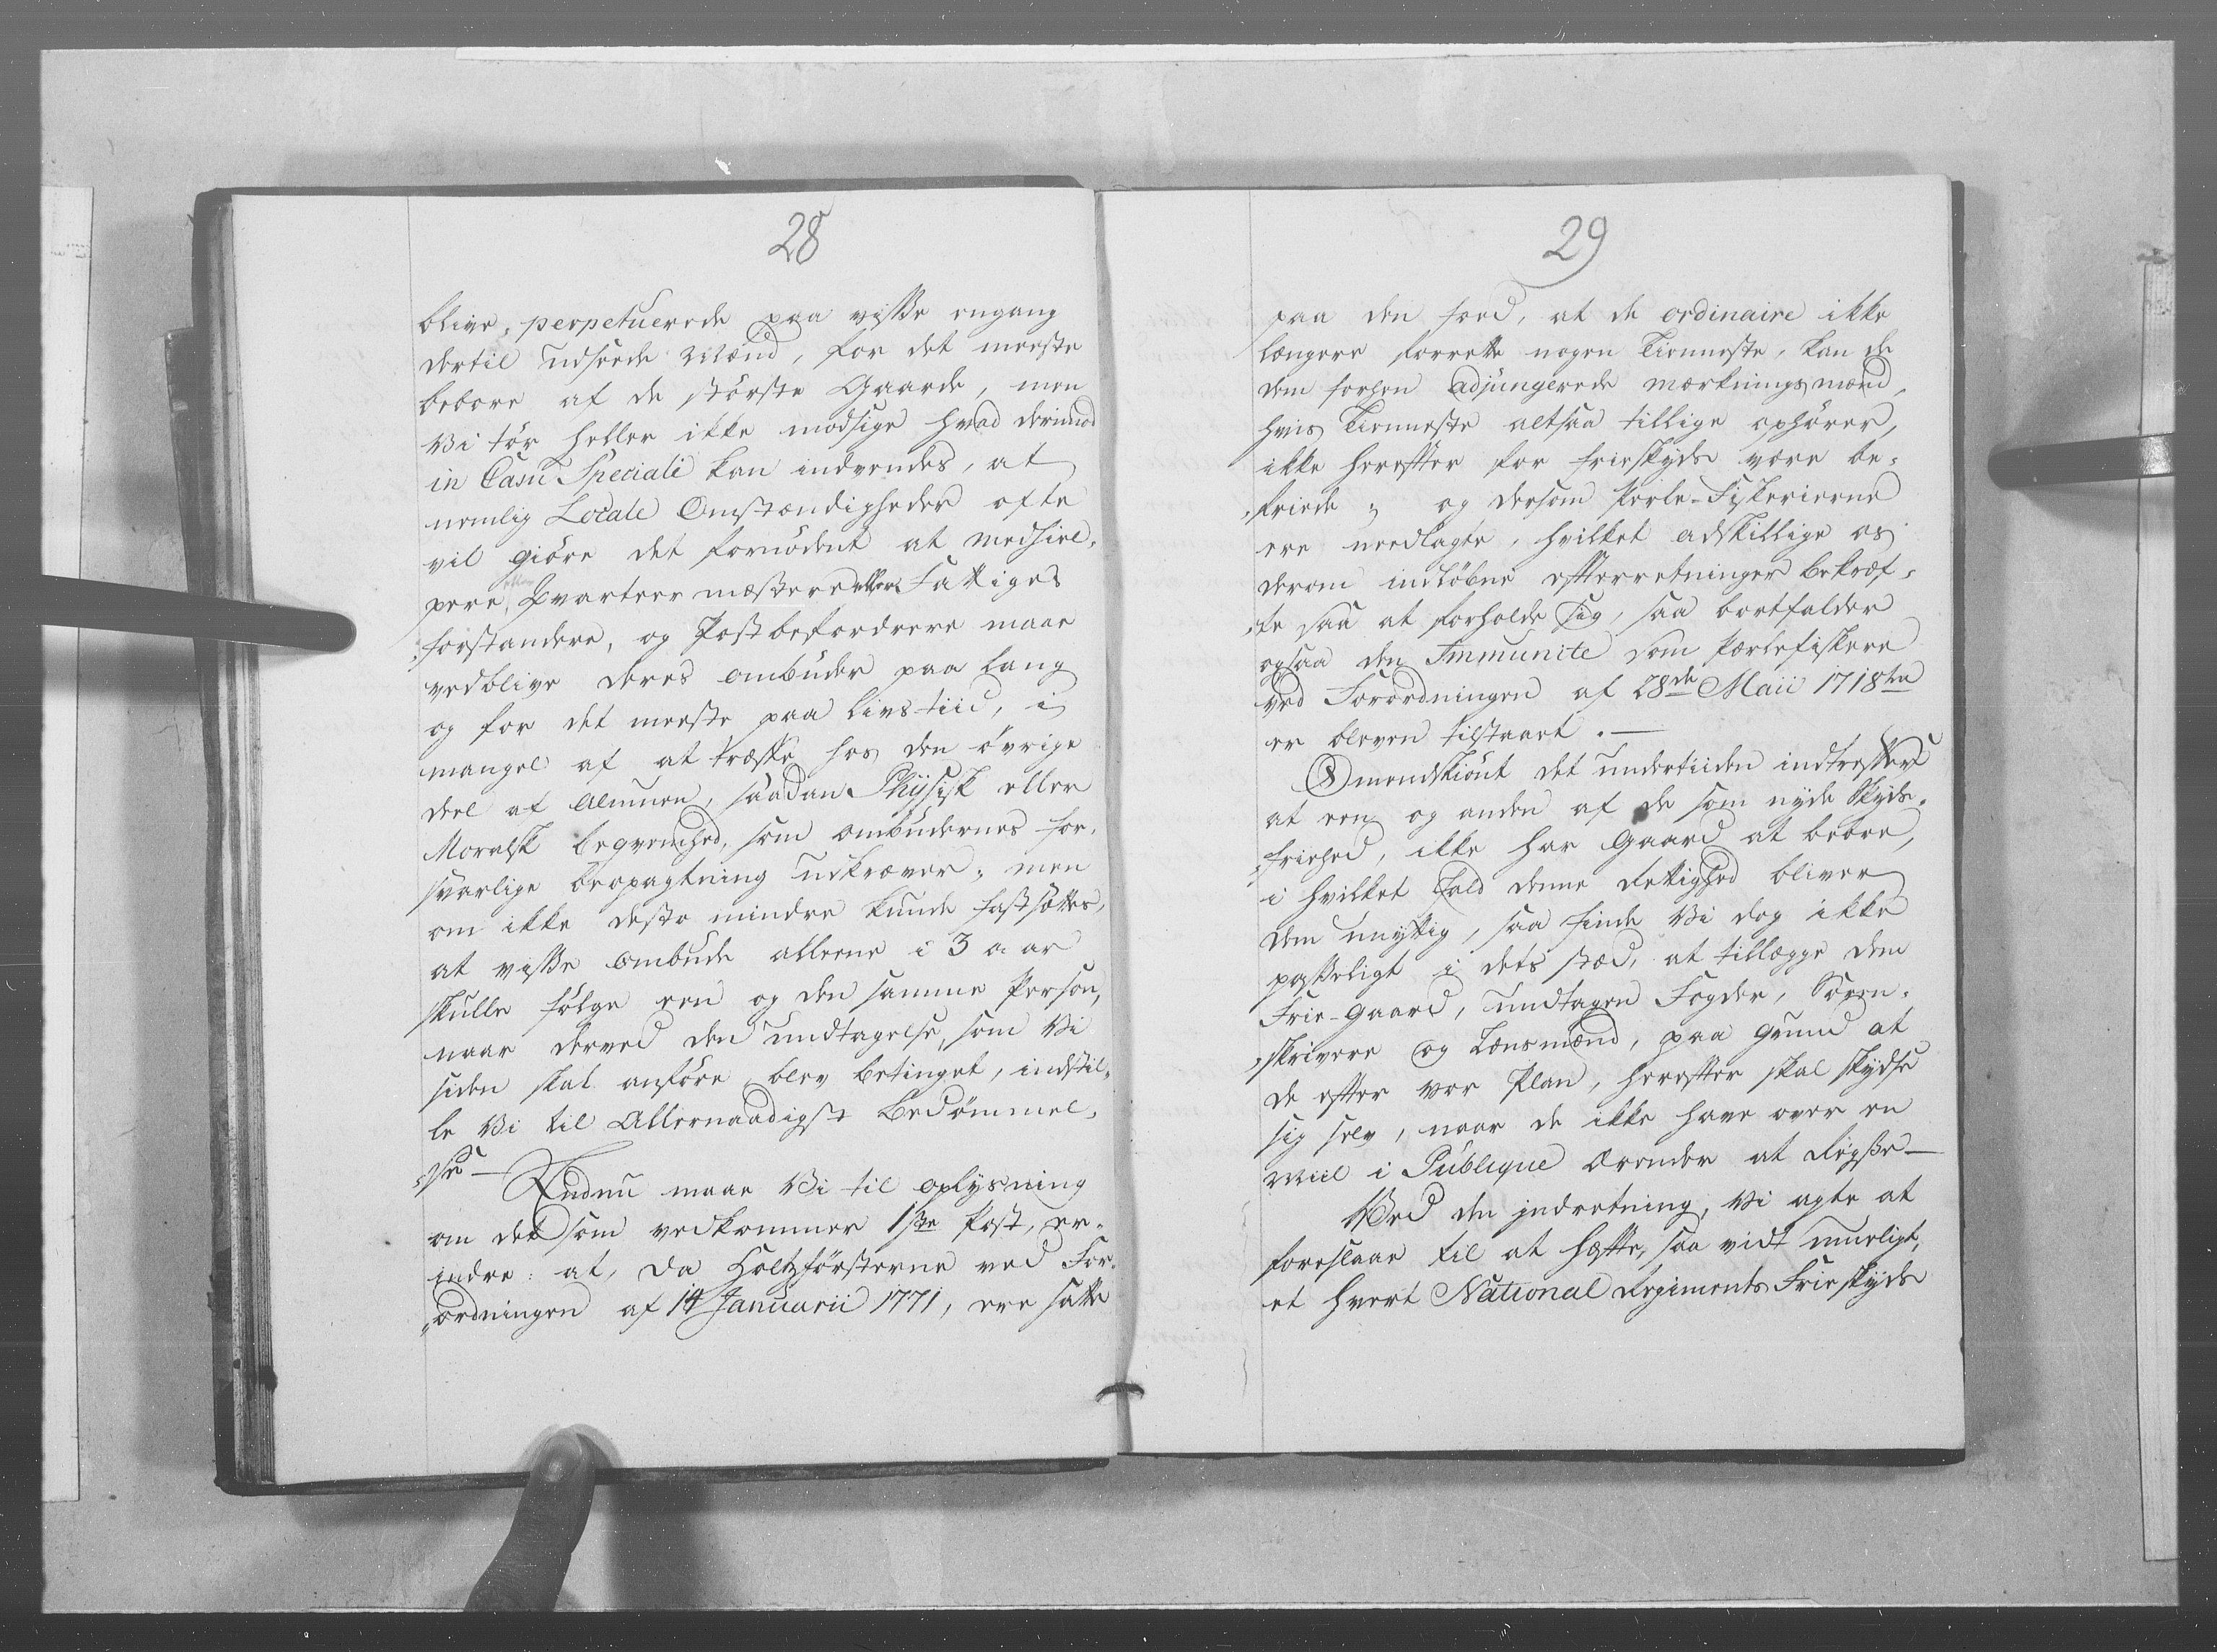 28
blive perpetuerede paa visse engang
dertil udseede Mænd, for det meeste
beboere af de störste Gaarde, men
Vi tör heller ikke modsige hvad derimod
in Casu Speciali kan indvendes, at
nemlig Locale Omstændigheder ofte
vil giöre det fornödent at medhiel-
pere, Qvarteermæstere eller Fattiges
forstandere, og Postbefordrere maae
vedblive deres ombuder paa lang
og for det meeste paa livs tiid, i
mangel af at træffe hos den övrige
deel af Almuen, saadan Physisk eller
Moralsk beqvemhed, som ombudernes for-
svarlige beopagtning udkræver; men
om ikke desto mindre kunde fastsættes,
at visse ombude alleene i 3 aar
skulle fölge een og den samme Person,
naar derved den undtagelse, som Vi
siden skal anföre blev betinget, indstil-
le Vi til Allernaadigst Bedömmel-
se —
Endnu maae Vi til oplysning
om det som vedkommer 1ste Post, er-
indre: at, da Holtzförsterne ved For-
ordningen af 14 Januarii 1771, ere satte
29
paa den foed, at de ordinaire ikke
længere forrette nogen Tienneste, kan de
dem forhen adjungerede mærkningsmænd,
hvis Tienneste altsaa tillige ophörer,
ikke herefter for frieskyds være be-
friede; og dersom Perle-Fiskerierne
ere nedlagte, hvilket adskillige os
derom indlöbne efterretninger bekræf-
te saa at forholde sig, saa bortfalder
ogsaa den Immunite som Perlefiskere
ved Forordningen af 28de Maii 1718ten
er bleven tilstaaet. —
Omendskiönt det undertiiden indtreffer
at een og anden af de som nyde Skyds-
friehed, ikke har Gaard at beboe,
i hvilket fald denne Rettighed bliver
dem unyttig, saa finde Vi dog ikke
passeligt i dets sted, at tillegge dem
Frie-Gaard, undtagen Fogder, Soren-
skrivere og Lænsmænd, paa grund at
de efter vor Plan, herefter skal skydse
sig selv, naar de ikke have over en
Miil i Publique Ærender at Reyse —
Ved den indretning, Vi agte at
foreslaae til at hefte, saa vidt muligt,
et hvert National Regiments Frieskyds